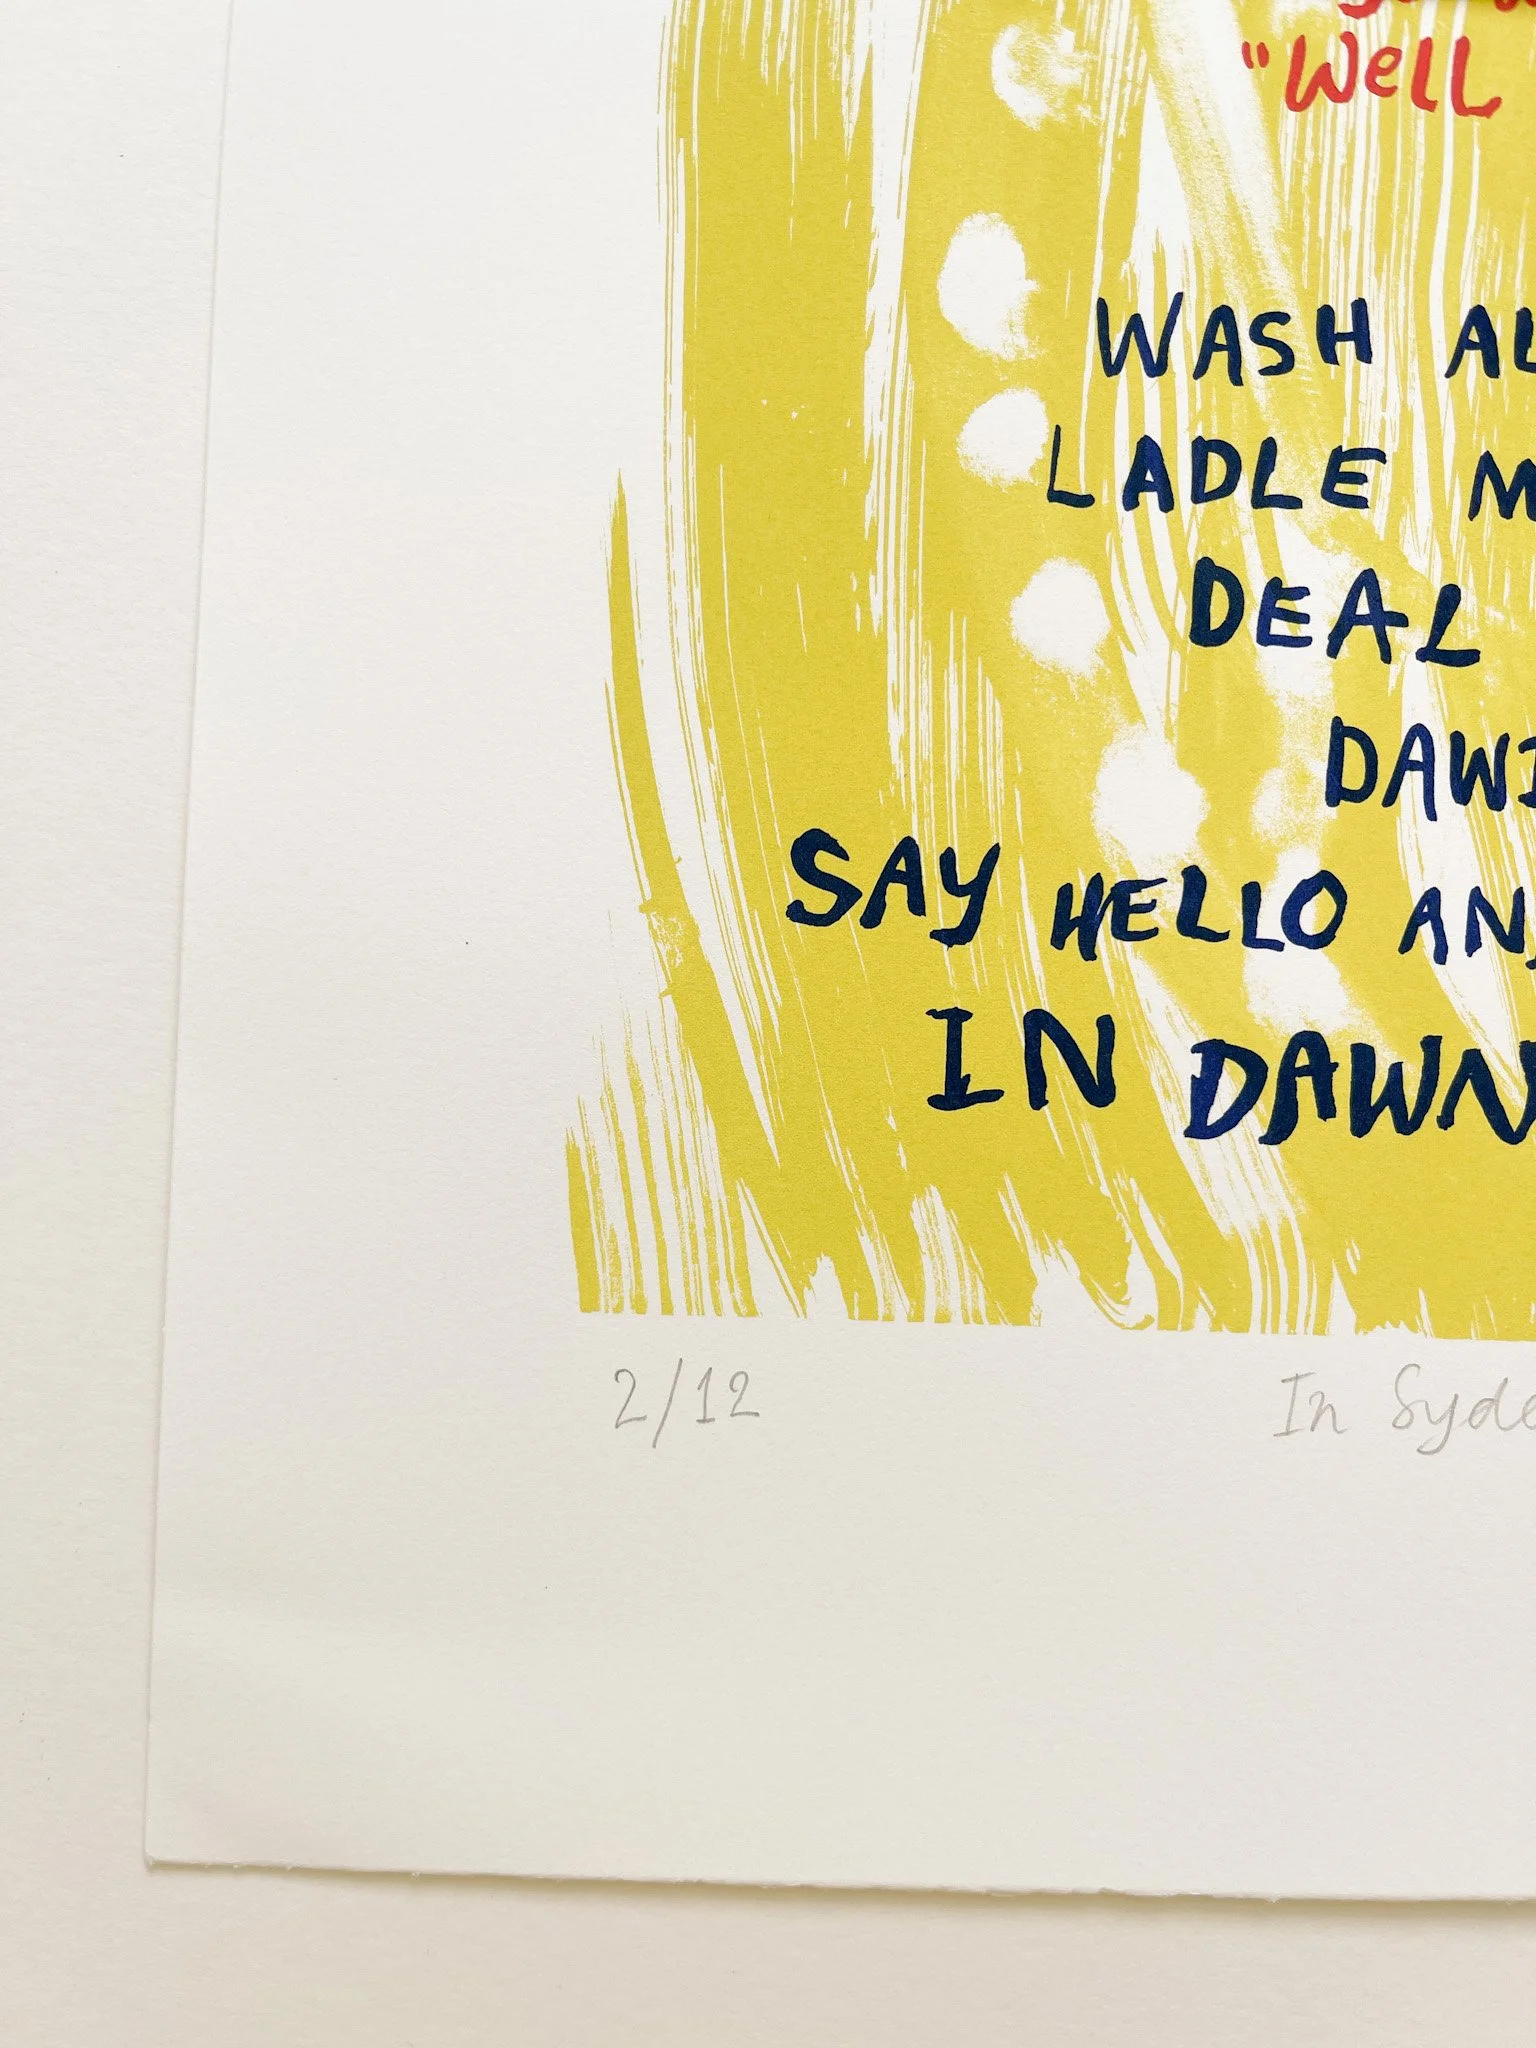 "Well
WASH AL
LADLE M
DEAL
DAWI
SAY HELLO AN
IN DAWN
2/12 In Syde